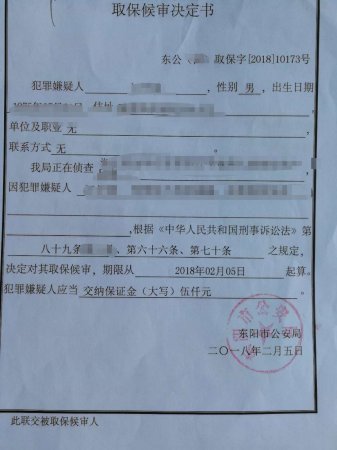 取保候审决定书
东公（ 取保字[2018]10173号
犯罪嫌疑人 ，性别 男 ，出生日期
住址
单位及职业 无
联系方式 无
我局正在侦查
因犯罪嫌疑人
，根据《中华人民共和国刑事诉讼法》第
八十九条 、第六十六条、第七十条 之规定，
决定对其取保候审，期限从 2018年02月05日 起算。
犯罪嫌疑人应当 交纳保证金（大写）伍仟元 。
东阳市公安局
二〇一八年二月五日
此联交被取保候审人